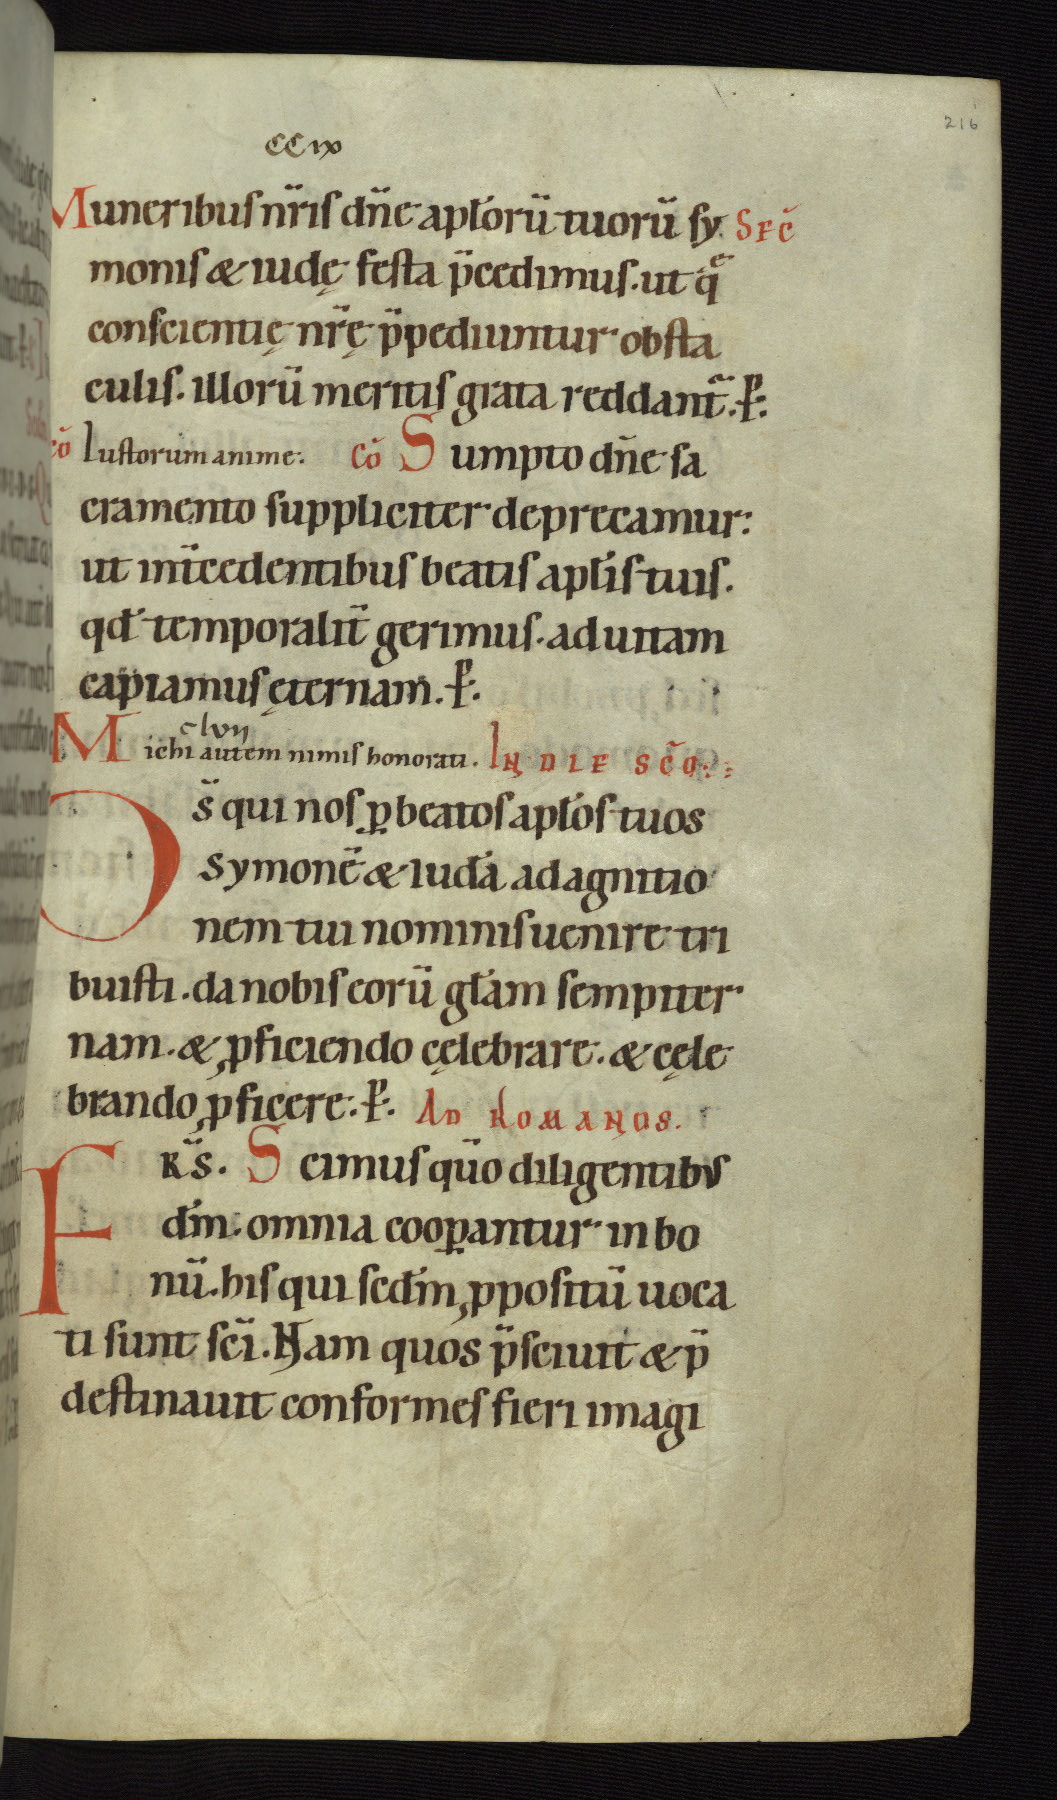 216
CCIX
Muneribus nr̄is dn̄e apl̄orū tuorū sy SEC̄
monis & iudę festa p̄cedimus. ut qͤ
conscientię nr̄ę p̄pediuntur obsta
culis. illorū meritis grata reddant̄. P̵.
cō Iustorum anime. cō Sumpto dn̄e sa
cramento suppliciter deprecamur:
ut int̄cedentibus beatis apl̄is tuis.
qd̄ temporalit̄ gerimus. ad uitam
capiamus ęternam. P̵.
clvii
Michi autem nimis honorati. IN DIE SC̄O.
Ds̄ qui nos ꝑ beatos apl̄os tuos
symonē & iudā ad agnitio
nem tui nominis uenire tri
buisti. da nobis eorū gl̄am sempiter
nam. & ꝓficiendo cęlebrare. & cęle
brando ꝓficere. P̵. AD ROMANOS.
FRS̄. Scimus qūo diligentibus
dm̄. omnia cooꝑantur in bo
nū. his qui scd̄m ꝓpositū uoca
ti sunt sc̄i. Nam quos p̄sciuit & p̄
destinauit conformes fieri imagi